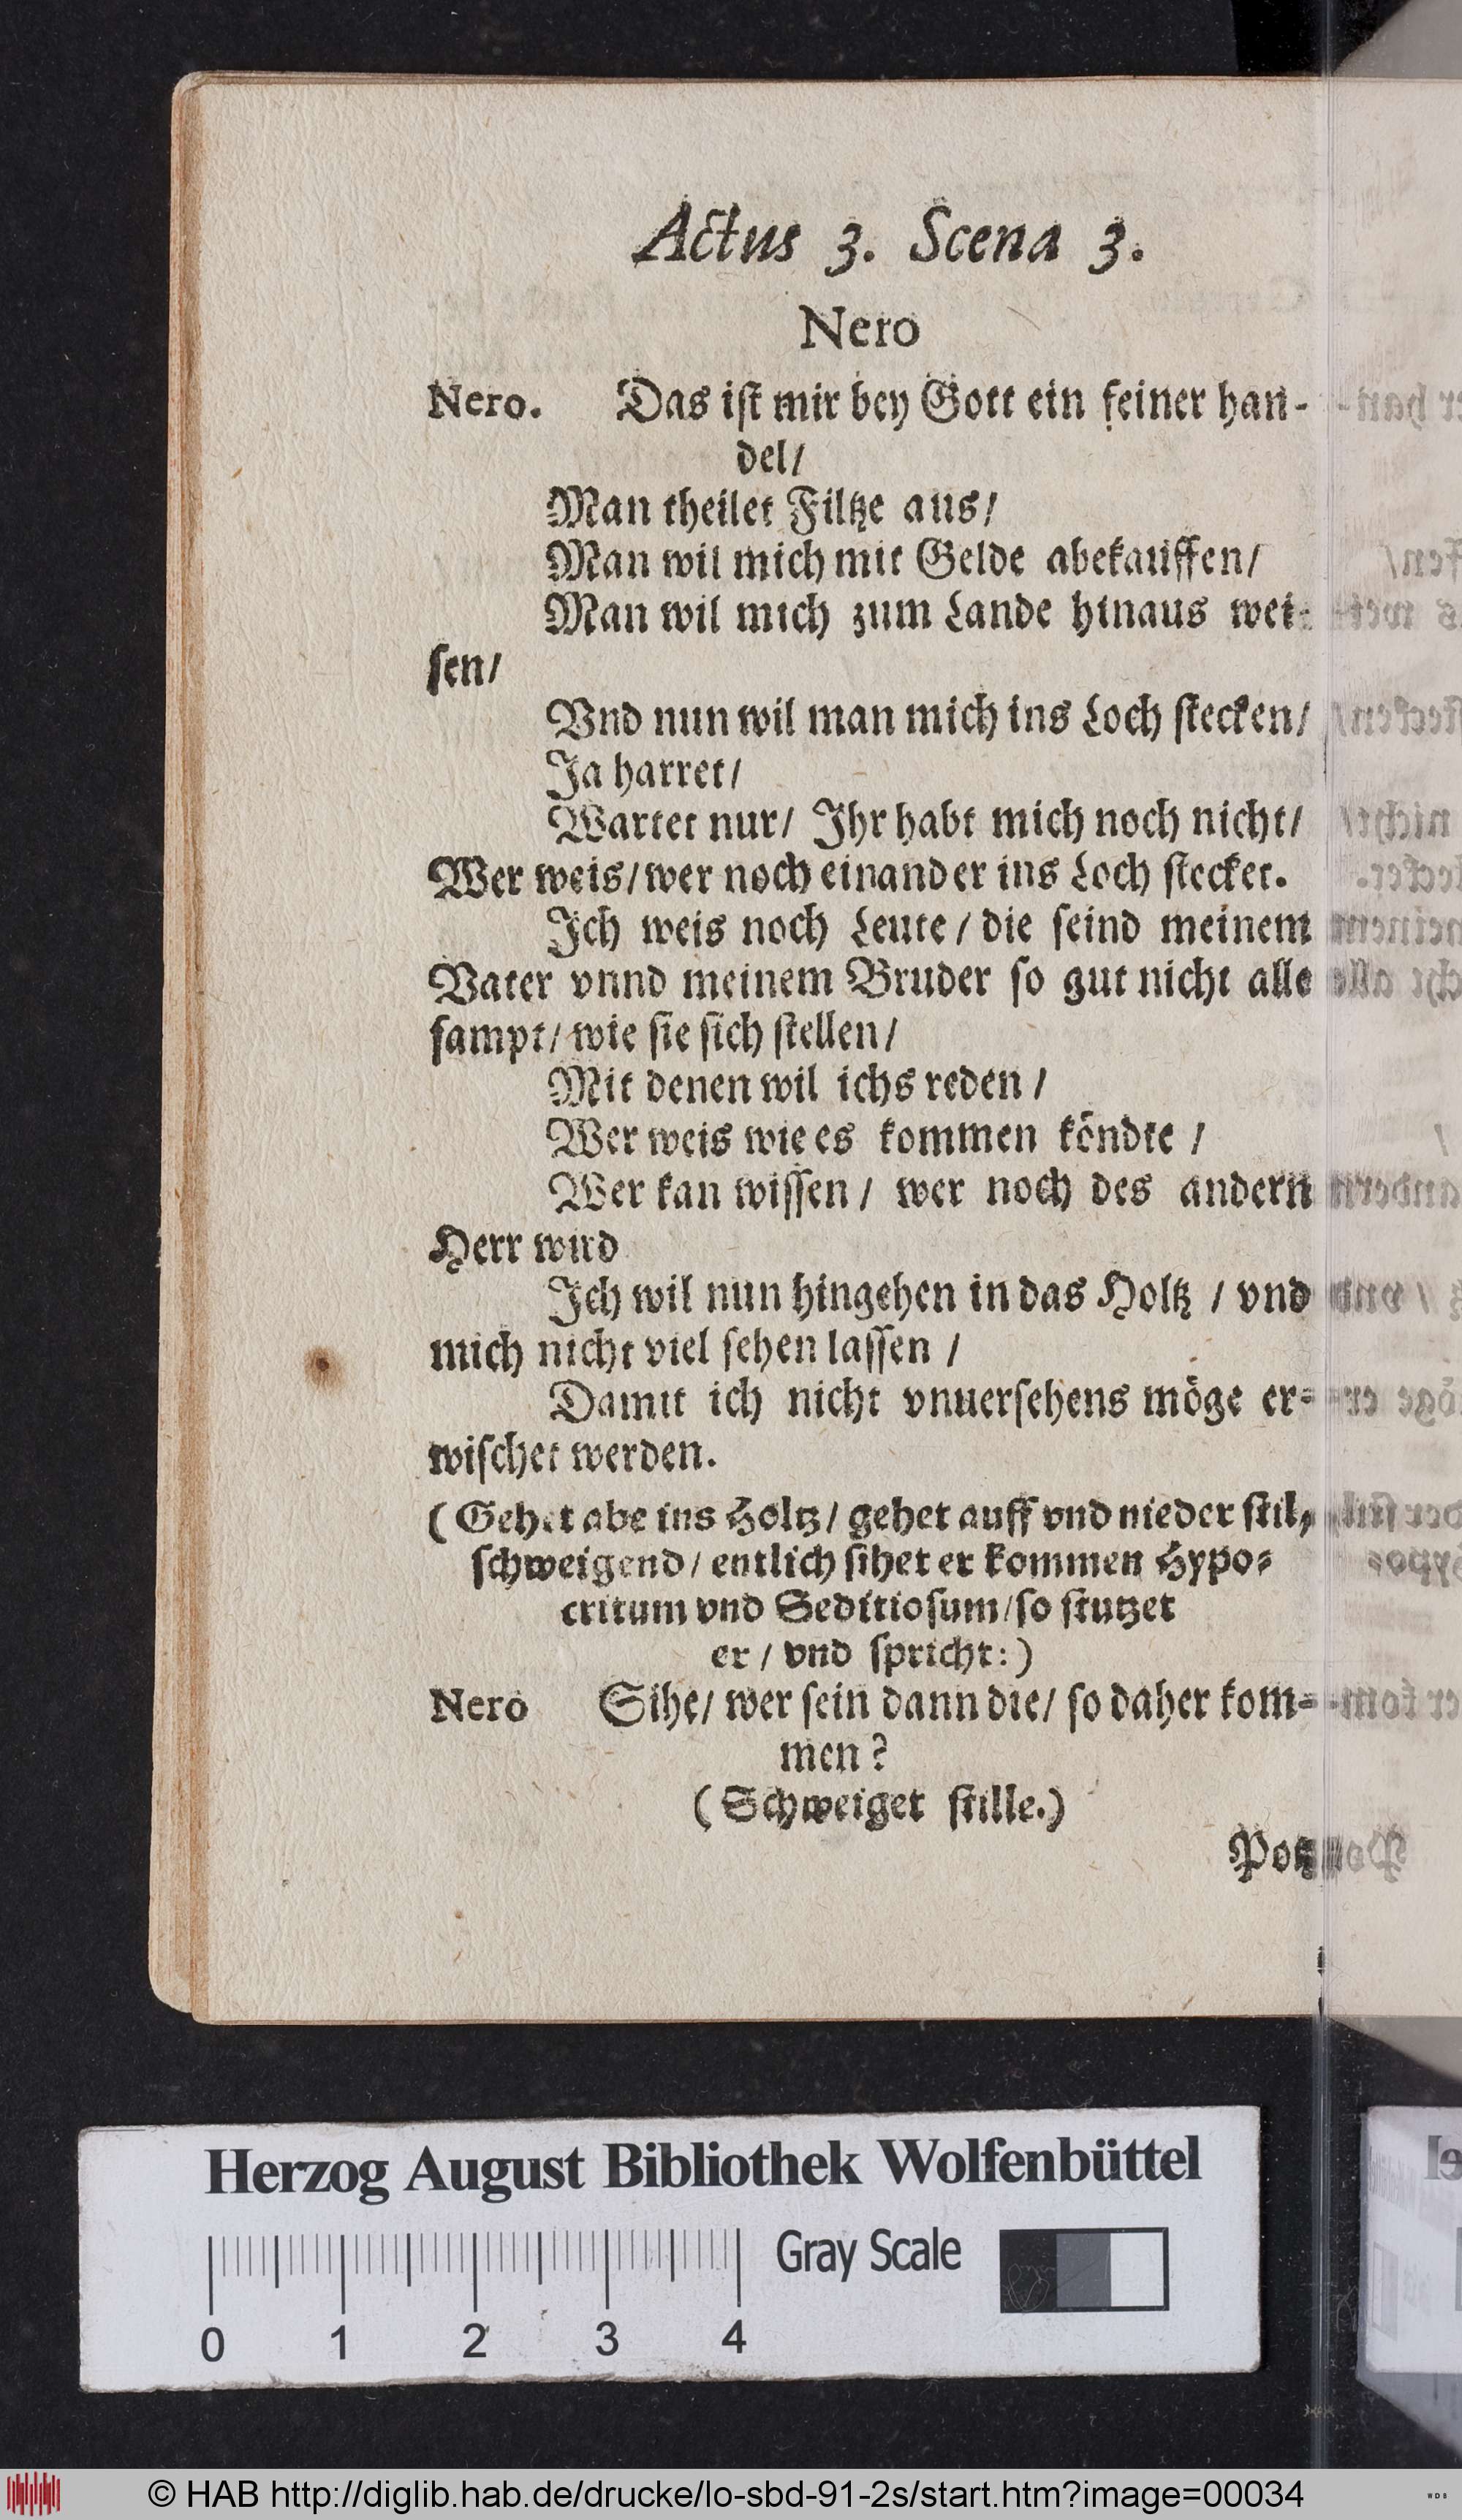 Actus 3. Scena 3.
Nero
Nero. Das iſt mir bey Gott ein feiner han-
del/
Man theilet Filtze aus/
Man wil mich mit Gelde abekauffen/
Man wil mich zum Lande hinaus wei-
ſen/
Vnd nun wil man mich ins Loch ſtecken/
Ja harret/
Wartet nur/ Ihr habt mich noch nicht/
Wer weis/ wer noch einander ins Loch ſtecket.
Ich weis noch Leute / die ſeind meinem
Vater vnnd meinem Bruder ſo gut nicht alle
ſampt/ wie ſie ſich ſtellen/
Mit denen wil ichs reden /
Wer weis wie es kommen köndte /
Wer kan wiſſen / wer noch des andern
Herr wird
Ich wil nun hingehen in das Holtz / vnd
mich nicht viel ſehen laſſen /
Damit ich nicht vnuerſehens möge er-
wiſchet werden.
( Gehet abe ins Holtz/ gehet auff vnd nieder ſtil-
ſchweigend/ entlich ſihet er kommen Hypo-
critum vnd Seditioſum/ ſo ſtutzet
er / vnd ſpricht: )
Nero Sihe/ wer ſein dann die/ ſo daher kom-
men ?
( Schweiget ſtille.)
Potz
Herzog August Bibliothek Wolfenbüttel
Gray Scale
0 1 2 3 4
© HAB http://diglib.hab.de/drucke/lo-sbd-91-2s/start.htm?image=00034